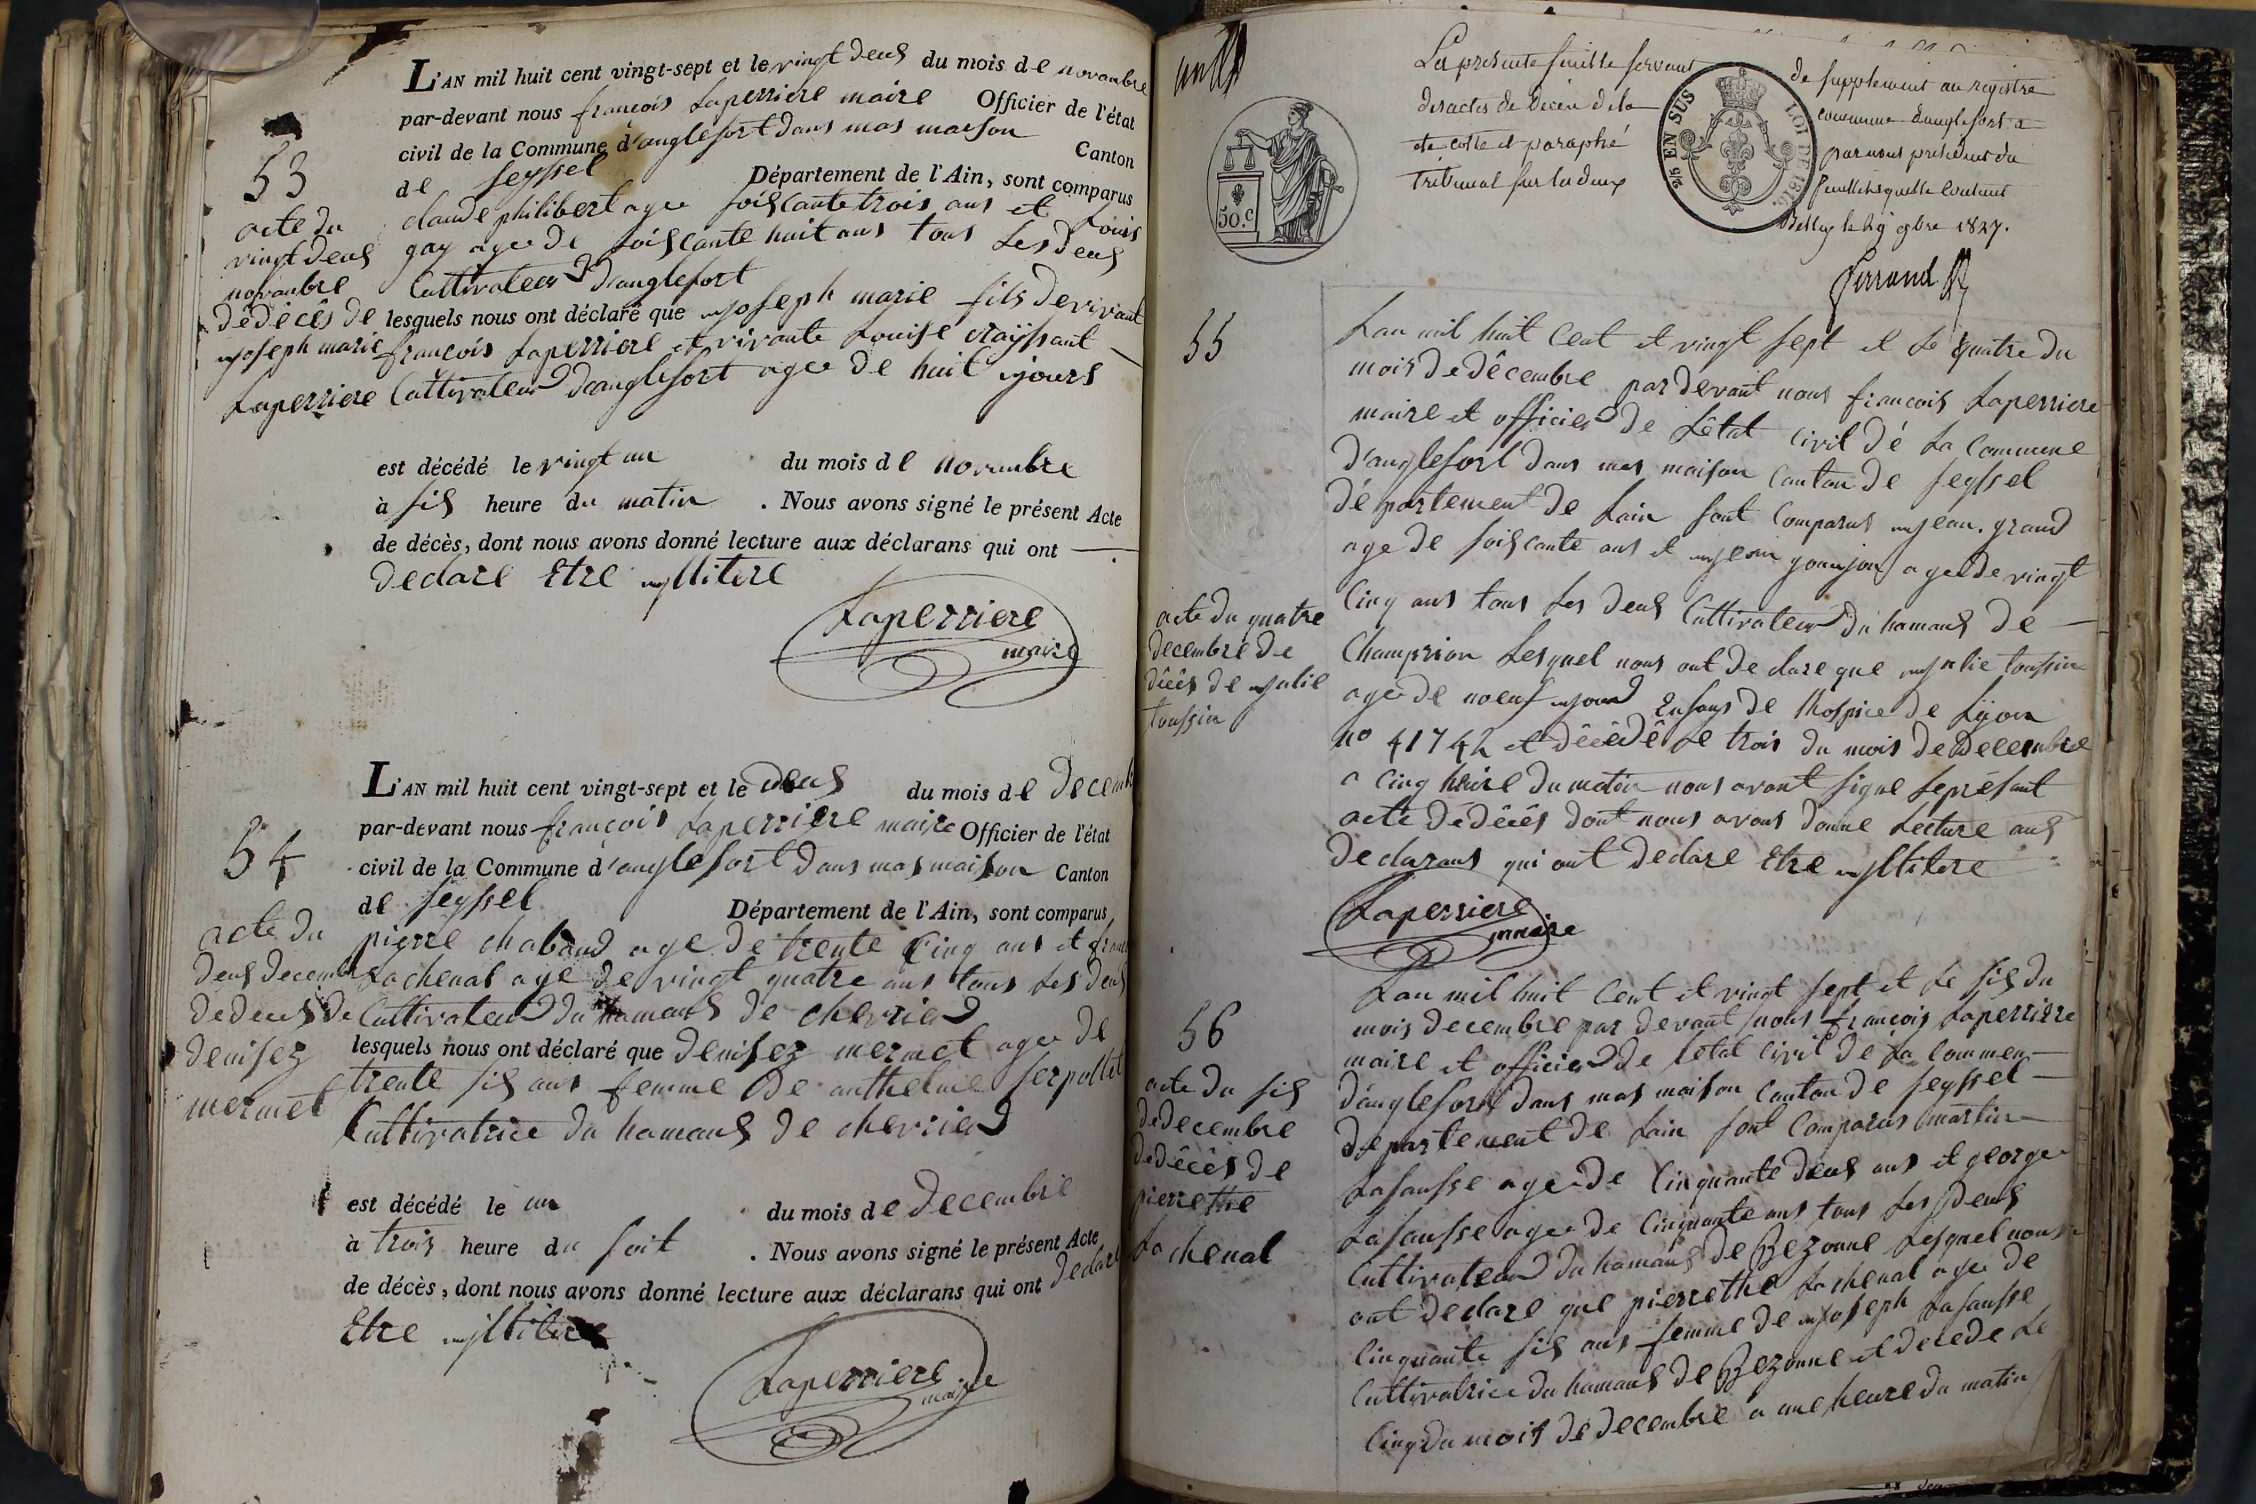 L'AN mil huit cent vingt-sept et le vingt deus du mois de novambre
par-devant nous françois Laperriere maire Officier de l'état
civil de la Commune d'anglefort dans mas maison Canton
de seyssel Département de l'Ain, sont comparus
claude philibert age soiscante trois ans et Louis
gay age de soiscante huit ans tous Les deus
Cultivateur d'anglefort
lesquels nous ont déclaré que joseph marie fils de vivant
françois Laperriere et vivante Louise
Cultivateur d'anglefort age de huit jours
est décédé le vingt un du mois de novembre
à sis heure du matin . Nous avons signé le présent Acte
de décès, dont nous avons donné lecture aux déclarans qui ont
declare Etre illitere
Laperriere
maire
53
acte du
vingt deus
novambre
dédécês de
joseph marie
Laperriere
L'AN mil huit cent vingt-sept et le deus du mois de Decemb
par-devant nous françois Laperriere maire Officier de l'état
civil de la Commune d'anglefort dans mas maison Canton
de seyssel Département de l'Ain, sont comparus
pierre chabaud age de trente Cinq ans et
Lachenal age de vingt quatre ans tous Les deus
Cultivateur du hamaus de chevrier
lesquels nous ont déclaré que Denisez mermet age de
trente sis ans femme de anthelme serpollet
Cultivatrice du hamaus de chevrier
est décédé le un du mois de Decembre
à trois heure du soit . Nous avons signé le présent Acte
de décès, dont nous avons donné lecture aux déclarans qui ont declare
Etre illitere
Laperriere
maire
54
acte du
deus decembre
dedecês de
denisez
mermet
La présente feuille servant de supplement au registre
des actes de Décès de la commune d'anglefort a
été cotté et paraphé par nous président du
tribunal sur les deux feuillets quelle contient
Belley le 29 9bre 1827.
Ferrand
50.c
2/5 EN SUS
LOI DE 1816.
55
acte du quatre
decembre de
dêcês de julie
toussin
Lan mil huit Cent et vingt sept et Le quatre du
mois de dêcembre par devant nous françois Laperriere
maire et officier de Létat Civil dé La Commune
d'anglefort dans mas maison Canton de seyssel
département de Lain sont Comparus jean grand
age de soiscante ans et jean goujon age de vingt
Cinq ans tous Les deus Cultivateur du hamaus de
Champrion Lesquel nous ont declare que julie toussin
age de noeuf jour Enfans de Lhospice de Lyon
no 41742 et dêcêdê Le trois du mois de Decembre
a Cinq heure du matin nous avont signe Leprésant
acte dédêcês dont nous avons donne Lecture aus
declarans qui ont declare Etre illitere
Laperriere
maire
56
acte du sis
dedecembre
dedêcês de
pierrethe
Lachenal
Lan mil huit Cent et vingt sept et Le sis du
mois decembre par devant nous françois Laperriere
maire et officier de Létat Civil de La Commen
d'anglefort dans mas maison Canton de seyssel
département de Lain sont Comparus martin
Lasausse age de Cinquante deus ans et george
Lasausse age de Cinquante ans tous Les deus
Cultivateur du hamaus de Bezonne Lesquel nous
ont declare que pierrethe Lachenal age de
Cinquante sis ans femme de joseph Lasausse
Cultivatrice du hamaus de Bezonne et decede Le
Cinq du mois de decembre a une heure du matin